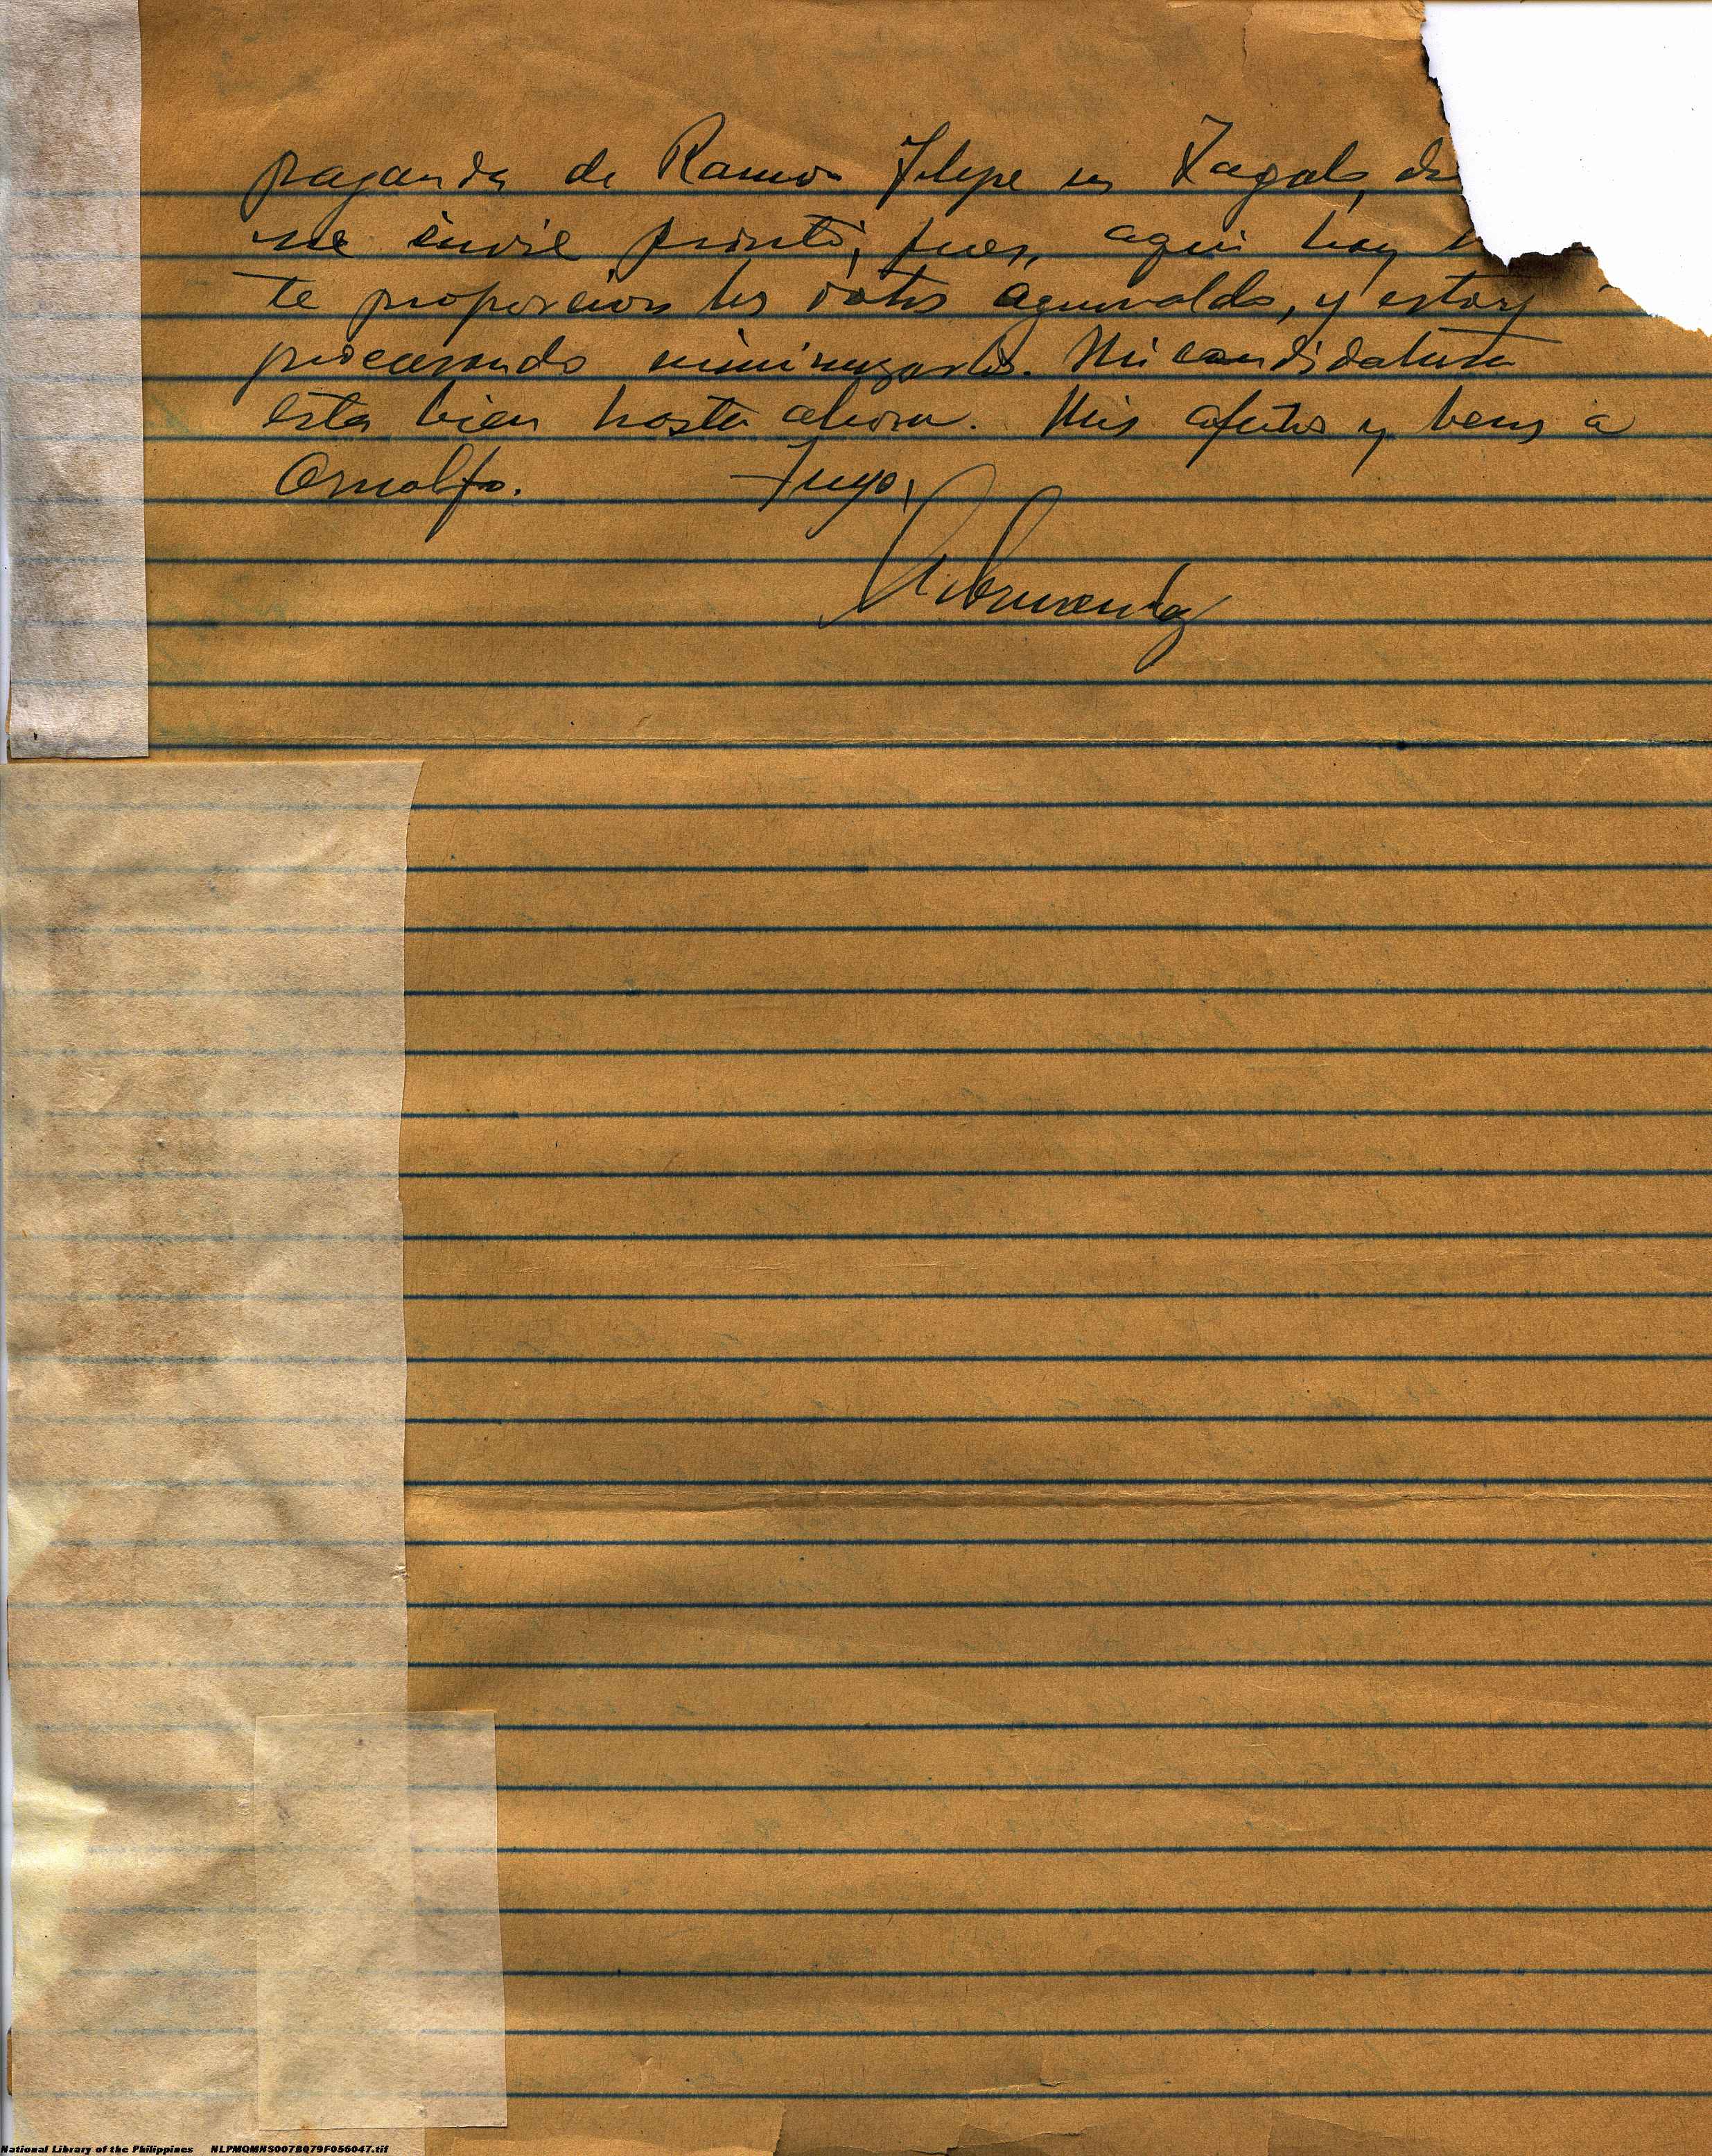 paganda de Ramon Felipe en Tagalo, de
me envie pronto, pues, aqui hay
te proporcion los votos aguinaldo, y estoy
procurando minimizarlos. Mi candidatura
esta bien hasta ahora. Mis afectos y besos a
Arnolfo. Tuyo,
National Library of the Philippines NLPMQMNS007BQ79F056047.tif